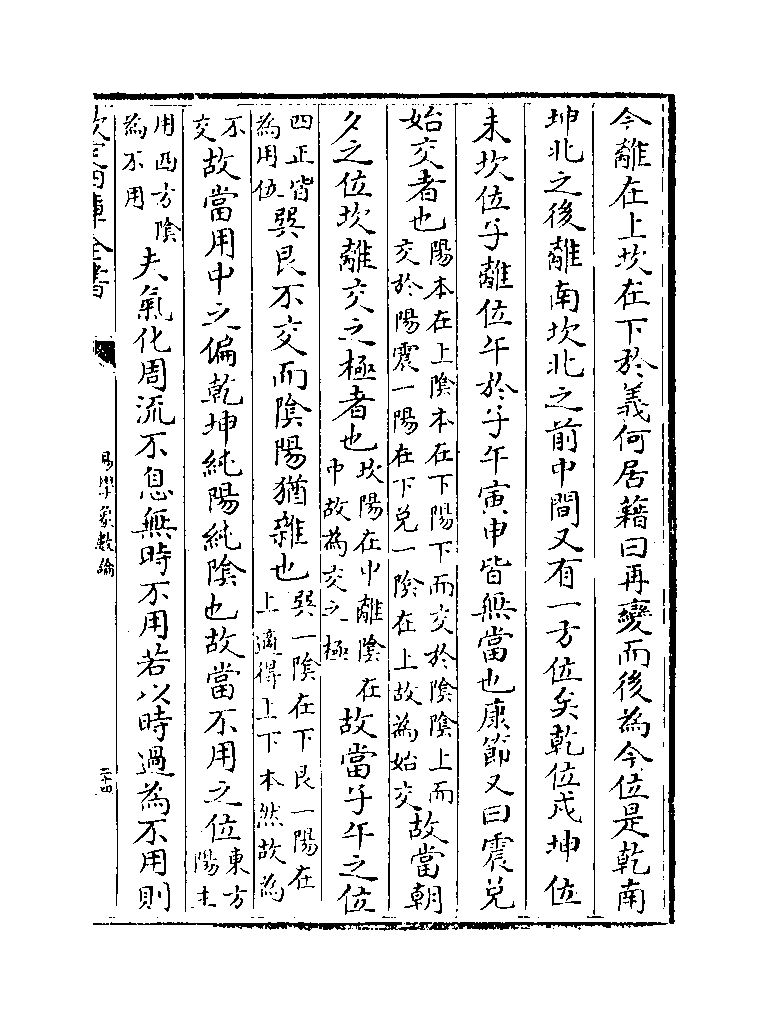 今離在上坎在下於義何居藉曰再變而後為今位是乾南
坤北之後離南坎北之前中間又有一方位矣乾位戌坤位
未坎位子離位午於子午寅申皆無當也康節又曰震兌
始交者也陽本在上隂本在下陽下而交於隂隂上而交於陽震一陽在下兌一隂在上故為始交故當朝
夕之位坎離交之極者也坎陽在中離隂在中故為交之極故當子午之位
四正皆為用位巽艮不交而隂陽猶雜也巽一隂在下艮一陽在上適得上下本然故為
不交故當用中之偏乾坤純陽純隂也故當不用之位東方陽主
用西方隂為不用夫氣化周流不息無時不用若以時過為不用則
欽定四庫全書
易學象數論
二十四